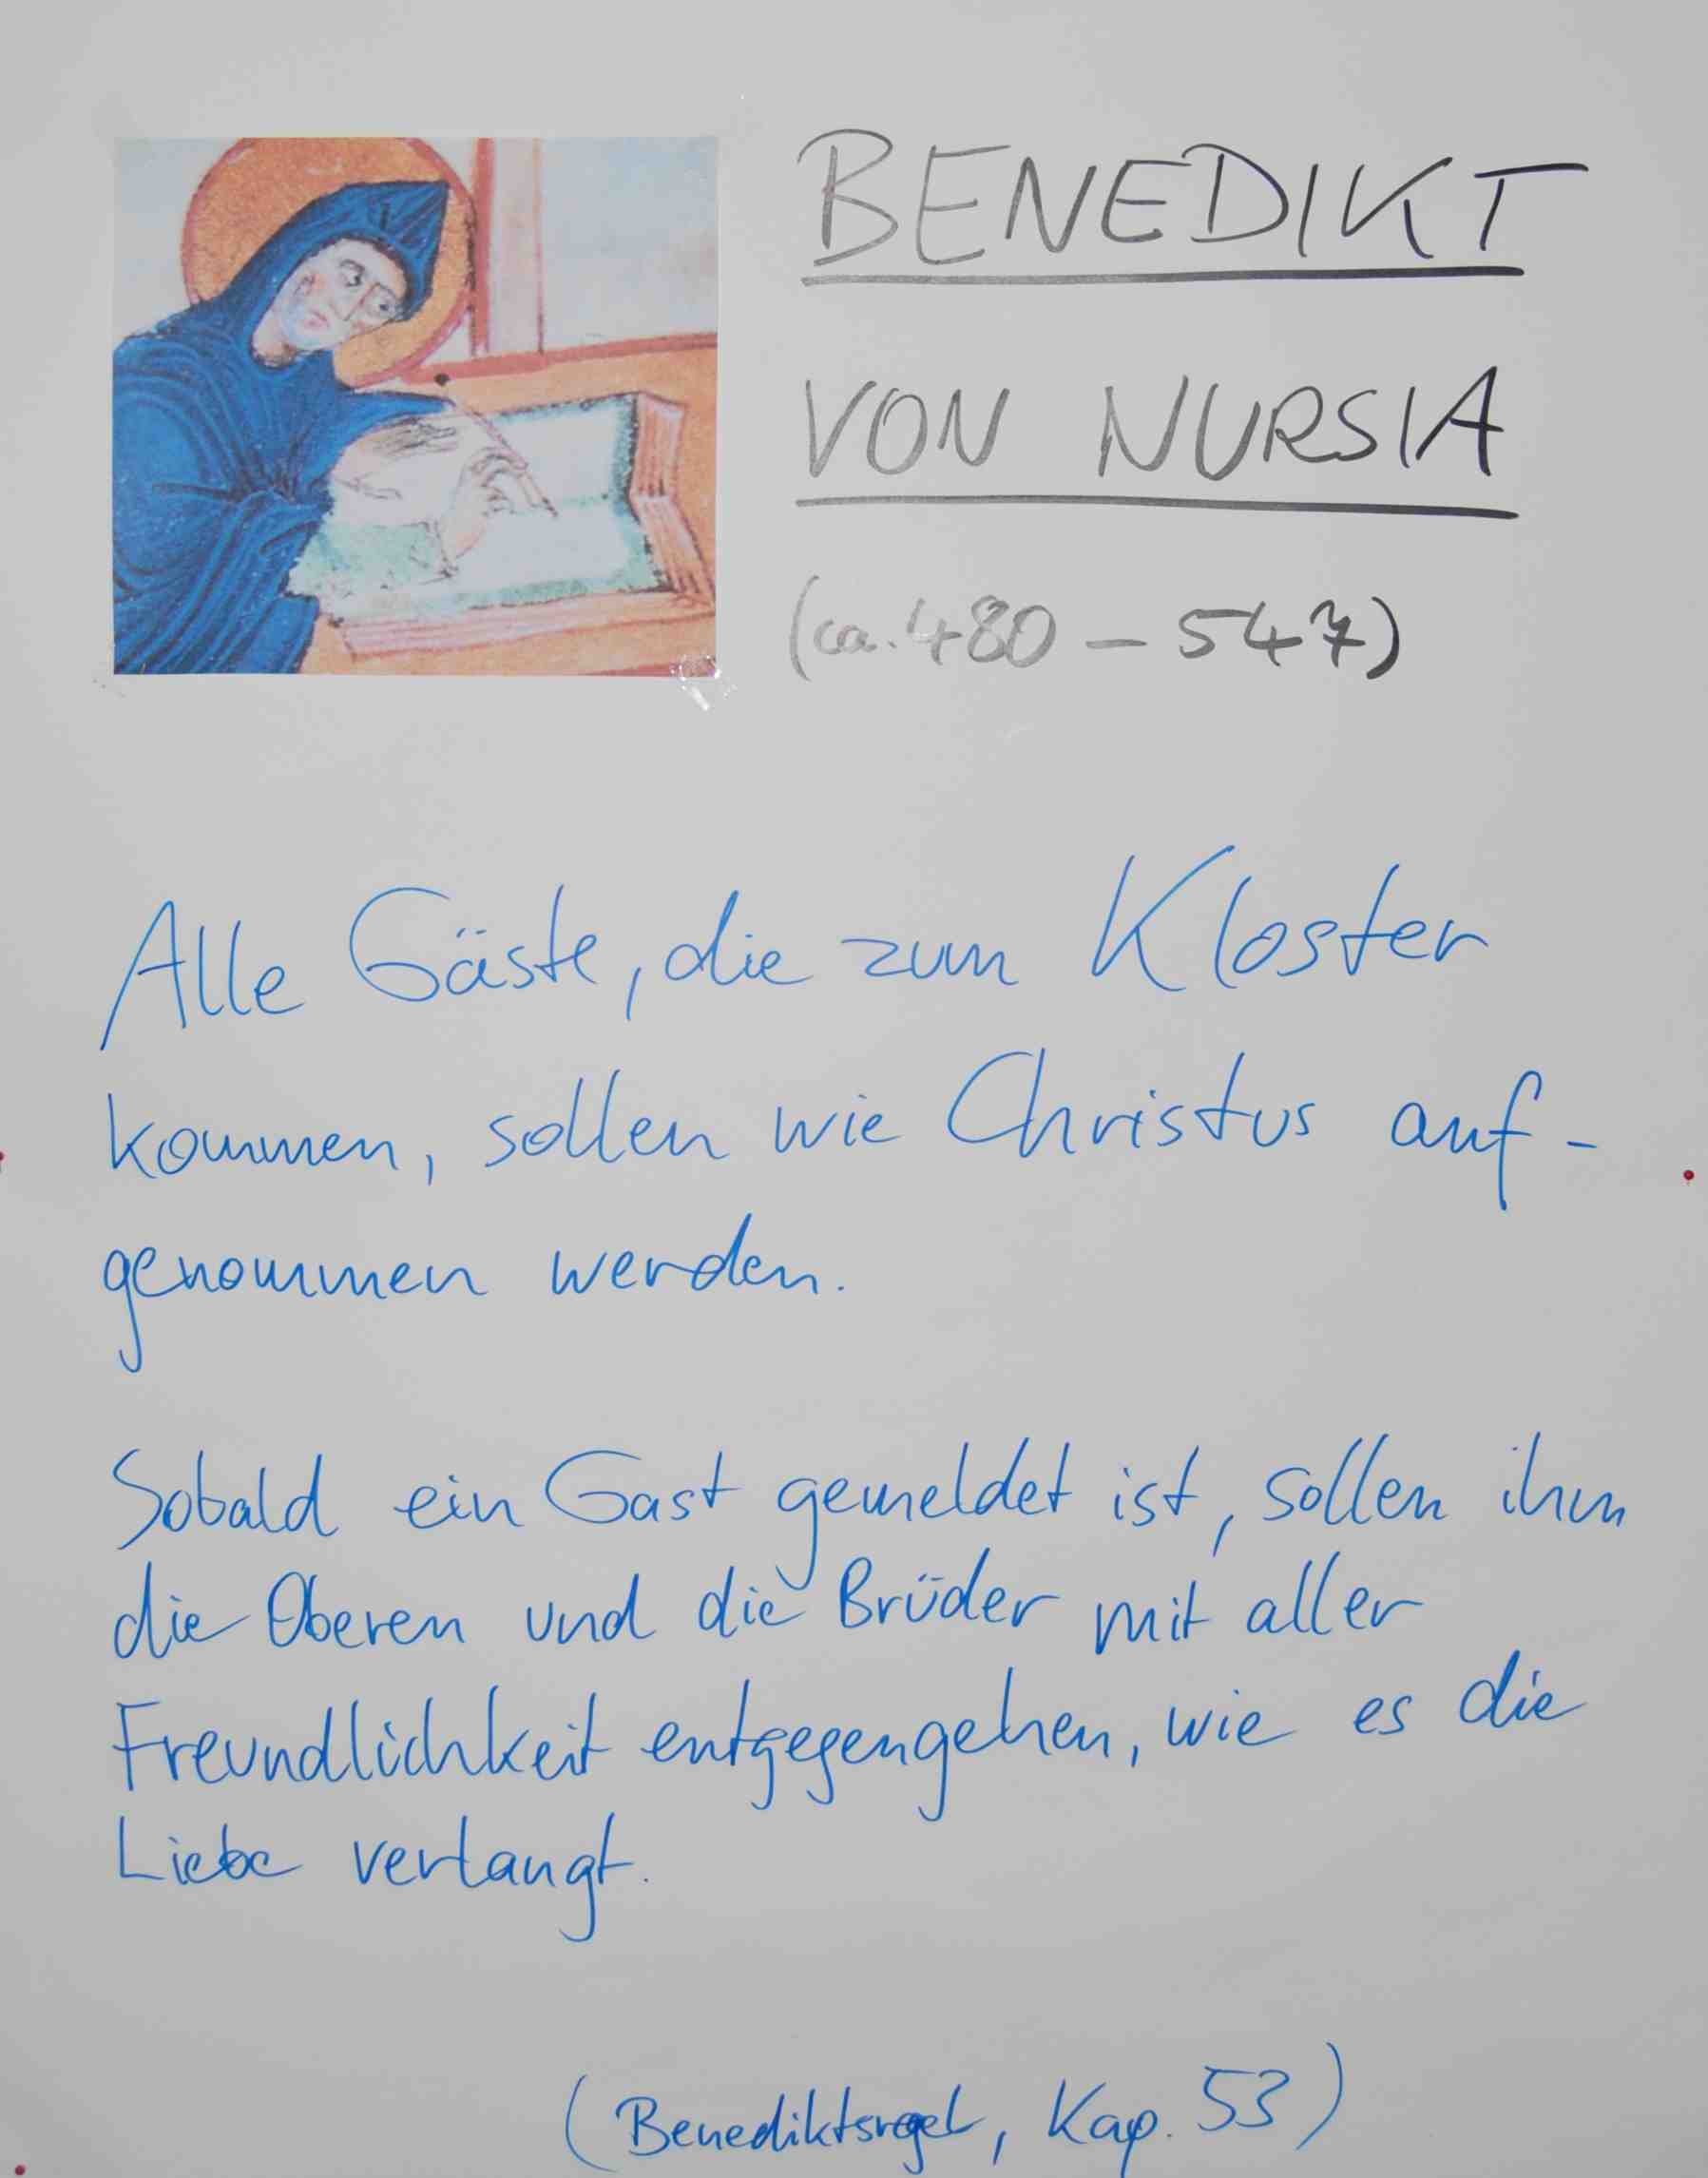 BENEDIKT
VON NURSIA
(ca. 480 – 547)
Alle Gäste, die zum Kloster
kommen, sollen wie Christus auf-
genommen werden.
Sobald ein Gast gemeldet ist, sollen ihm
die Oberen und die Brüder mit aller
Freundlichkeit entgegengehen, wie es die
Liebe verlangt.
(Benediktsregel, Kap. 53)